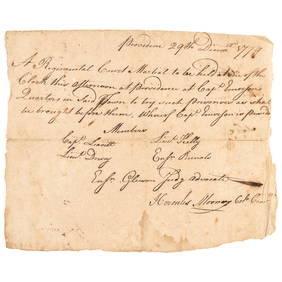 Providence 29th Decemr 1778
A Regimental Court Martial to be held at of the
Clock this afternoon at Providence at Capt
Quarters in Said Town to try such Prisoners as shall
be brought before them, Whereof Capt is President
Members
Capt Lieut Kelly
Lieut Ensn Runals
Ensn Judg Advocate
Hercules Mooney Colo